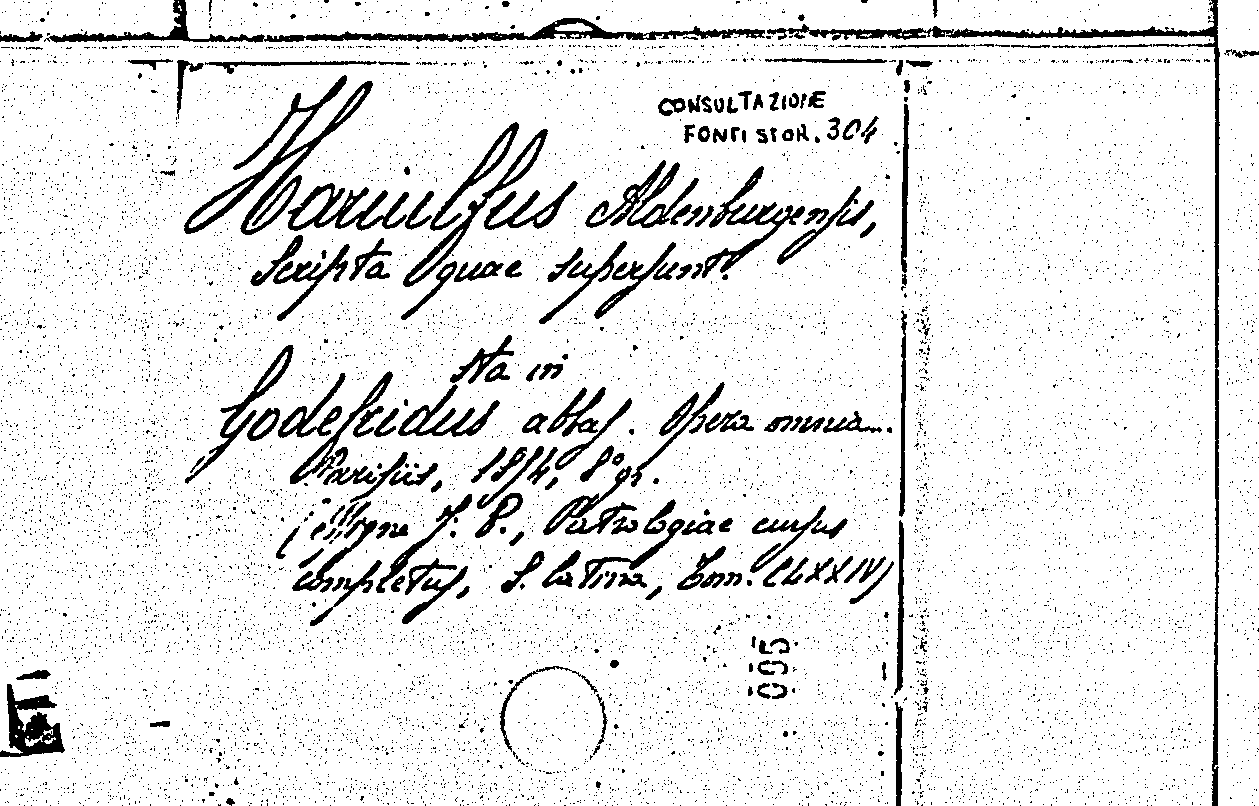 CONSULTAZIONE
FONTI STOR. 304
Hariulfus Aldenburgensis,
Scripta quae supersunt.
Sta in
Godefridus abbas. Opera omnia...
Parisiis, 1854, 8° gr.
(Migne J. P., Patrologiae cursus
completus, S. latina, Tom. CLXXIV)
005